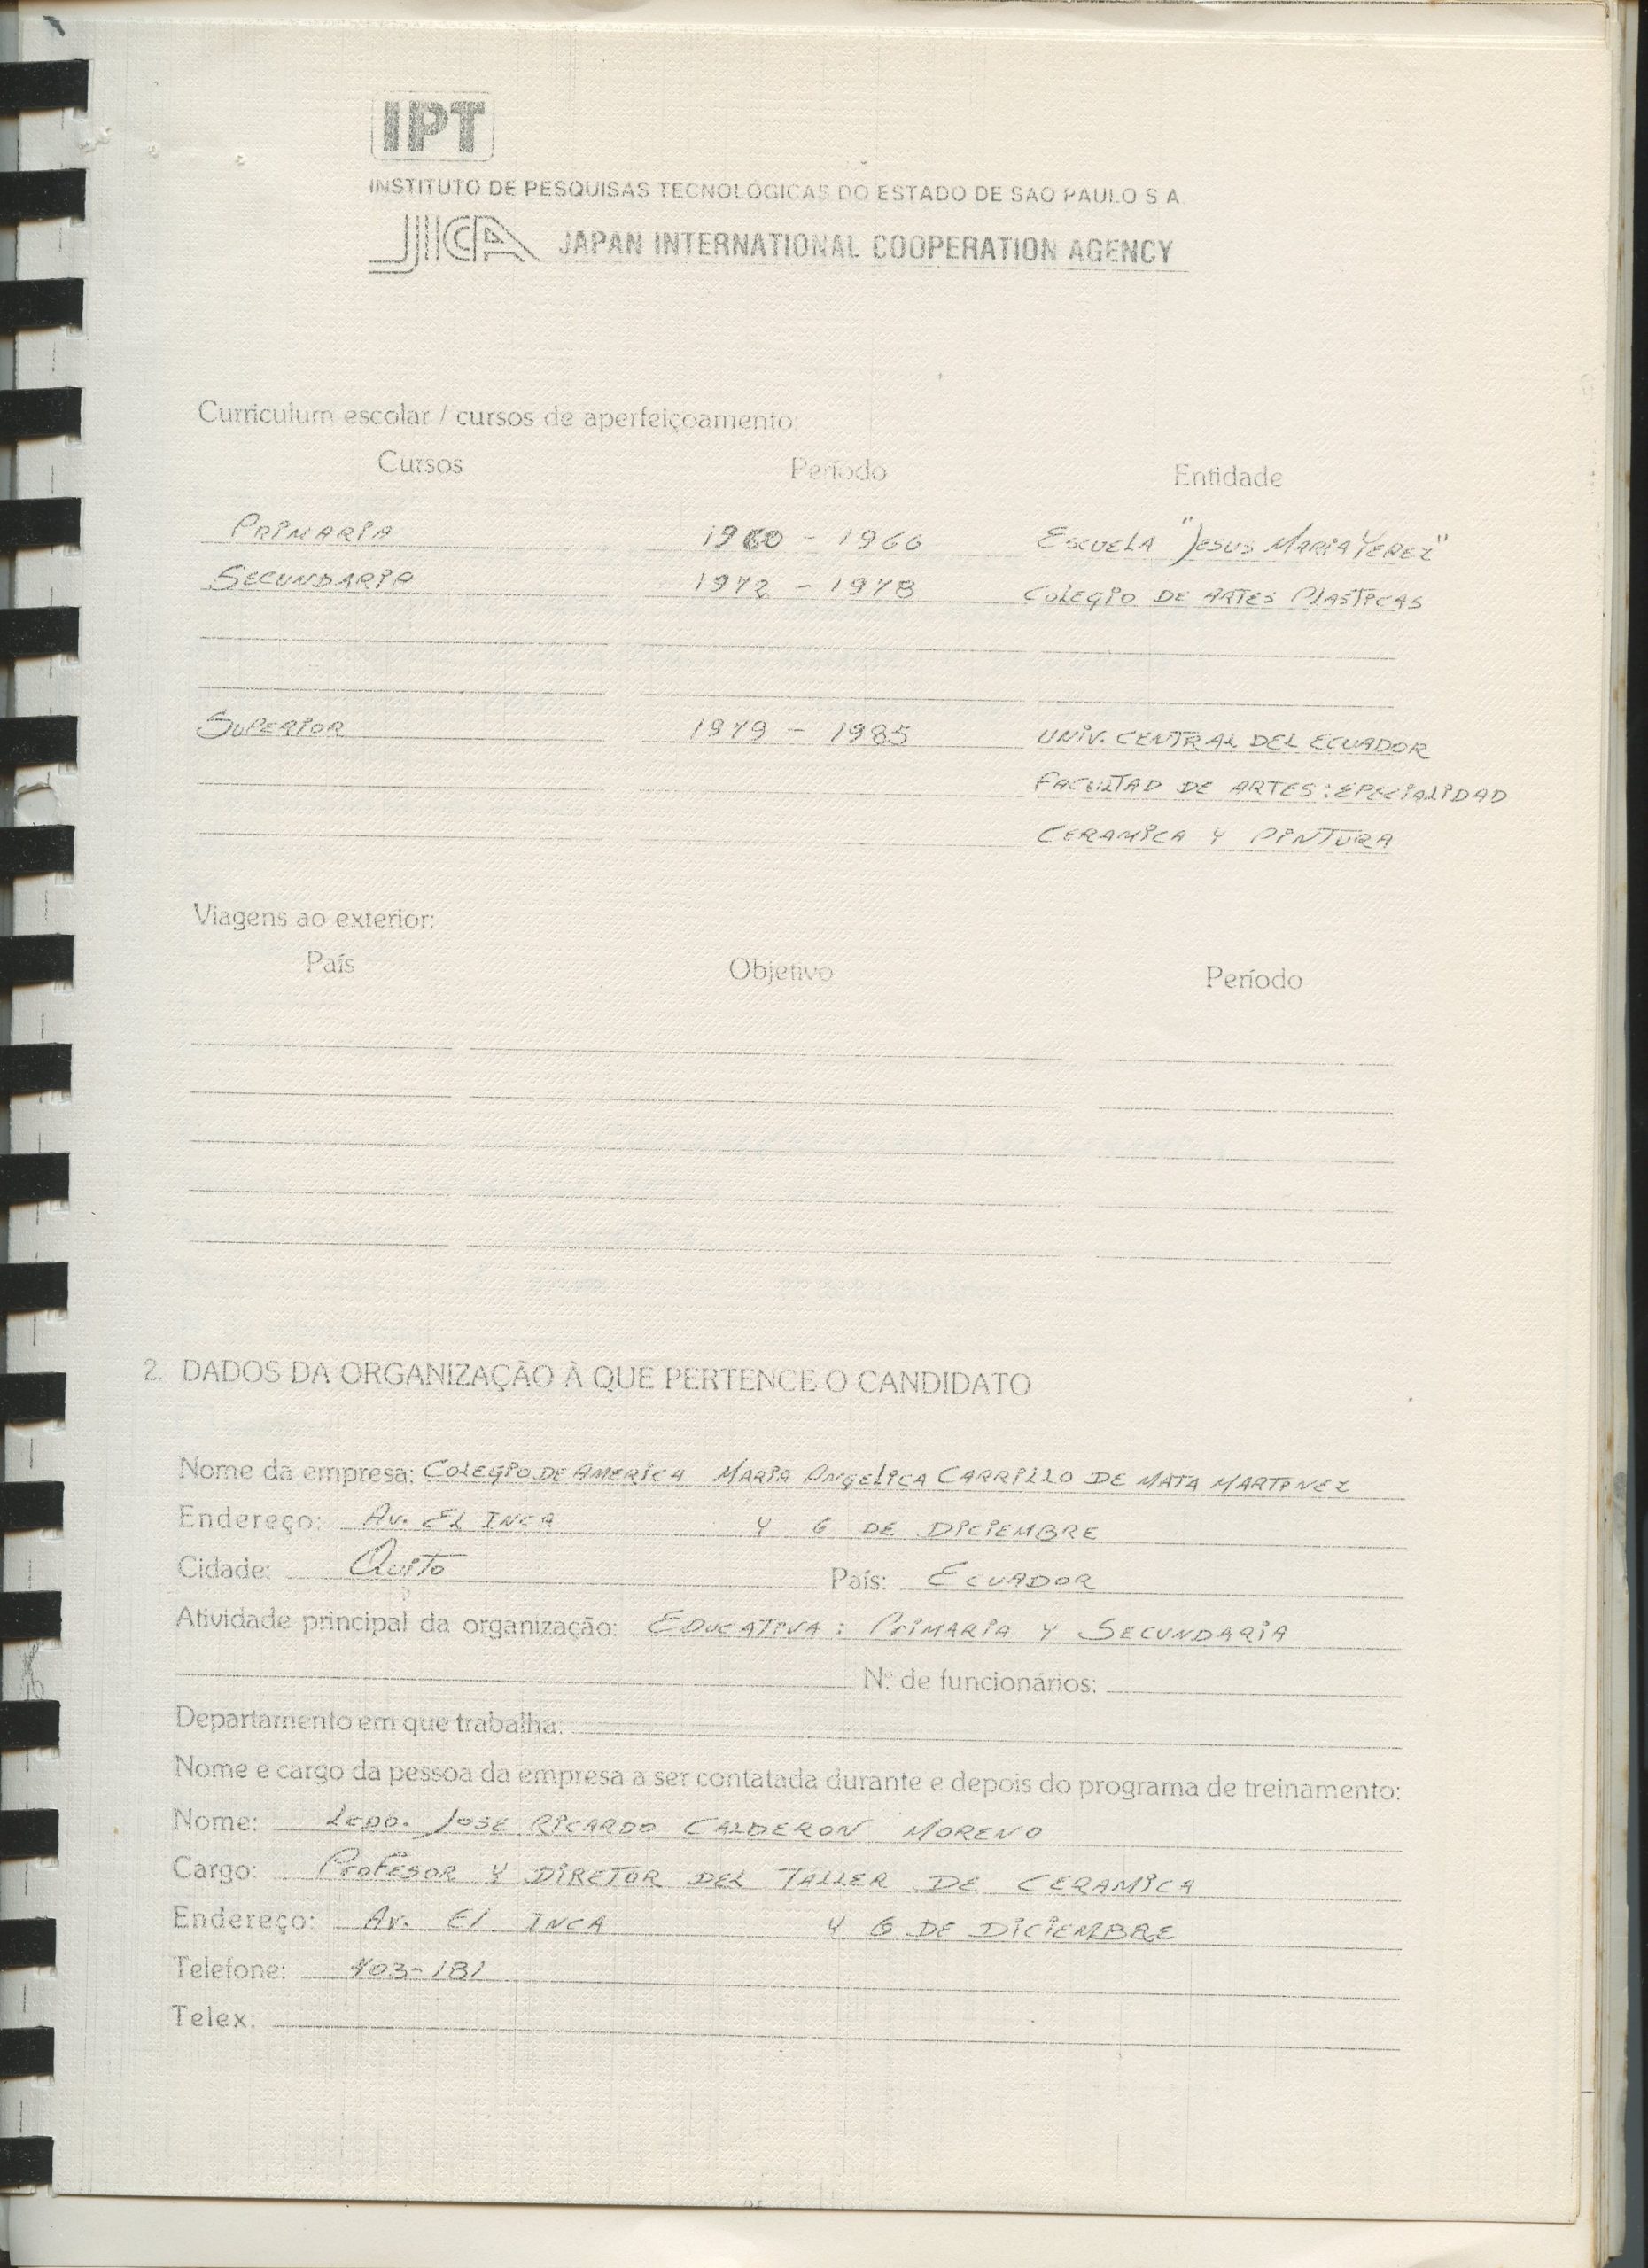 IPT
INSTITUTO DE PESQUISAS TECNOLOGICAS DO ESTADO DE SAO PAULO S A
JICA JAPAN INTERNATIONAL COOPERATION AGENCY
Curriculum escolar / cursos de aperfeiçoamento:
Cursos Período Entidade
PRIMARIA 1960 - 1966 ESCUELA "JESUS MARIA YEREZ"
SECUNDARIA 1972 - 1978 COLEGIO DE ARTES PLASTICAS
SUPERIOR 1979 - 1985 UNIV. CENTRAL DEL ECUADOR
FACULTAD DE ARTES: EPECIALIDAD
CERAMICA Y PINTURA
Viagens ao exterior:
País Objetivo Período
2. DADOS DA ORGANIZAÇÃO À QUE PERTENCE O CANDIDATO
Nome da empresa: COLEGIO DE AMERICA MARIA ANGELICA CARRILLO DE MATA MARTINEZ
Endereço: AV. EL INCA Y 6 DE DICIEMBRE
Cidade: QUITO País: ECUADOR
Atividade principal da organização: EDUCATIVA: PRIMARIA Y SECUNDARIA
N.º de funcionários:
Departamento em que trabalha:
Nome e cargo da pessoa da empresa a ser contatada durante e depois do programa de treinamento:
Nome: LCDO. JOSE RICARDO CALDERON MORENO
Cargo: PROFESOR Y DIRETOR DEL TALLER DE CERAMICA
Endereço: AV. El INCA Y 6 DE DICIEMBRE
Telefone: 403-181
Telex: